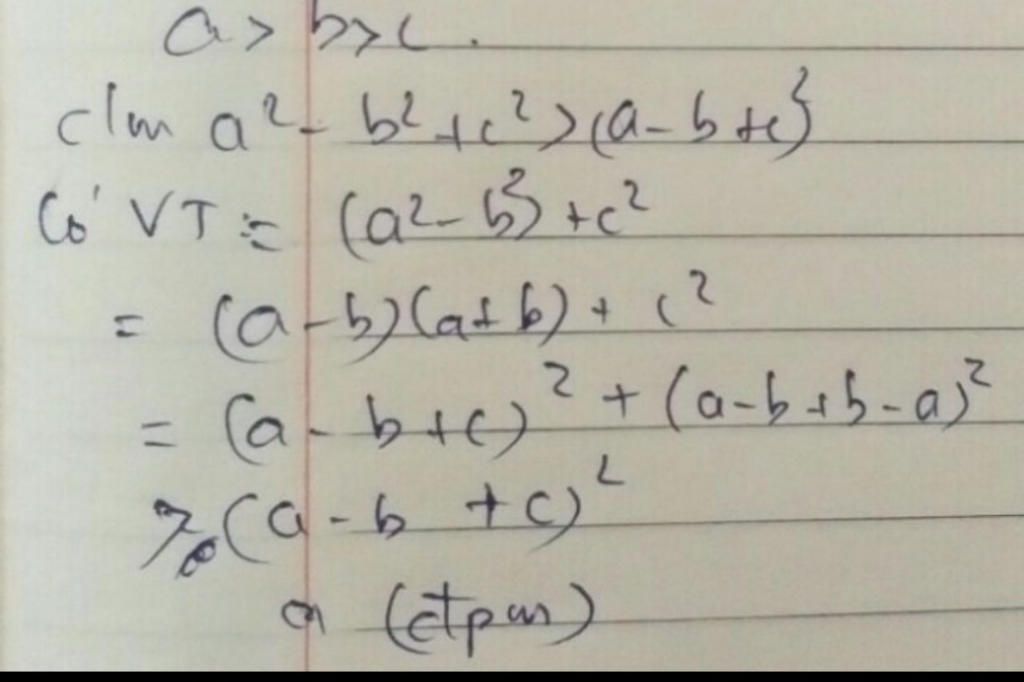 a > b > c .
c/m a² - b² + c² > (a - b + c)²
Có VT := (a² - b²) + c²
= (a - b)(a + b) + c²
= (a - b + c)² + (a - b + b - a)²
≥ (a - b + c)²
(đpcm)